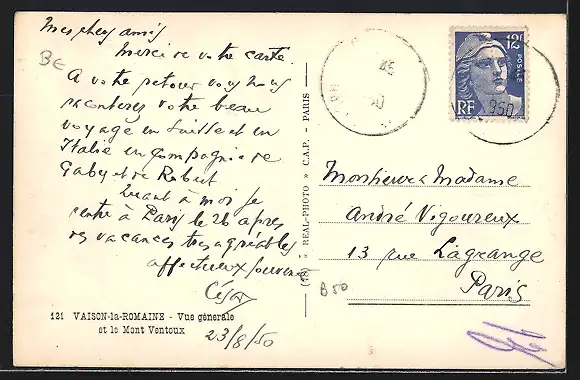 Mes chers amis
Merci de votre carte.
A votre retour vous nous
raconterez votre beau
voyage en Suisse et en
Italie en compagnie de
Gaby et de Robert
Quant à moi je
rentre à Paris le 26 après
des vacances très agréables
affectueux souvenirs
César
121 VAISON-la-ROMAINE - Vue générale
et le Mont Ventoux
23/8/50
BE
« REAL-PHOTO » C.A.P. - PARIS
45
12F
POSTES
RF
950
Monsieur & Madame
André Vigoureux
13 rue Lagrange
Paris
B50